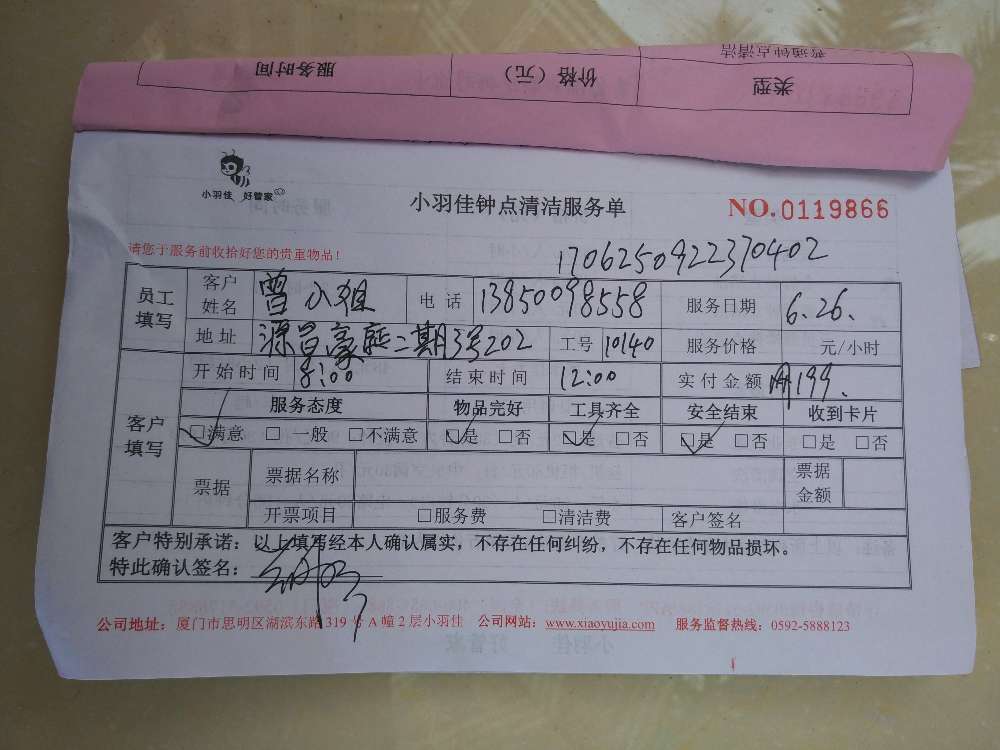 普通钟点清洁
类型 价格（元） 服务时间
小羽佳 好管家
小羽佳钟点清洁服务单
NO.0119866
请您于服务前收拾好您的贵重物品！
1706250922370402
员工填写 客户姓名 曾小姐 电话 13850098558 服务日期 6.26.
地址 源昌豪庭二期3号202 工号 10140 服务价格 元/小时
客户填写 开始时间 8:00 结束时间 12:00 实付金额 199.
服务态度 物品完好 工具齐全 安全结束 收到卡片
□满意 □一般 □不满意 □是 □否 □是 □否 □是 □否 □是 □否
票据 票据名称 票据金额
开票项目 □服务费 □清洁费 客户签名
客户特别承诺：以上填写经本人确认属实，不存在任何纠纷，不存在任何物品损坏。
特此确认签名：
公司地址：厦门市思明区湖滨东路319号A幢2层小羽佳 公司网站：www.xiaoyujia.com 服务监督热线：0592-5888123